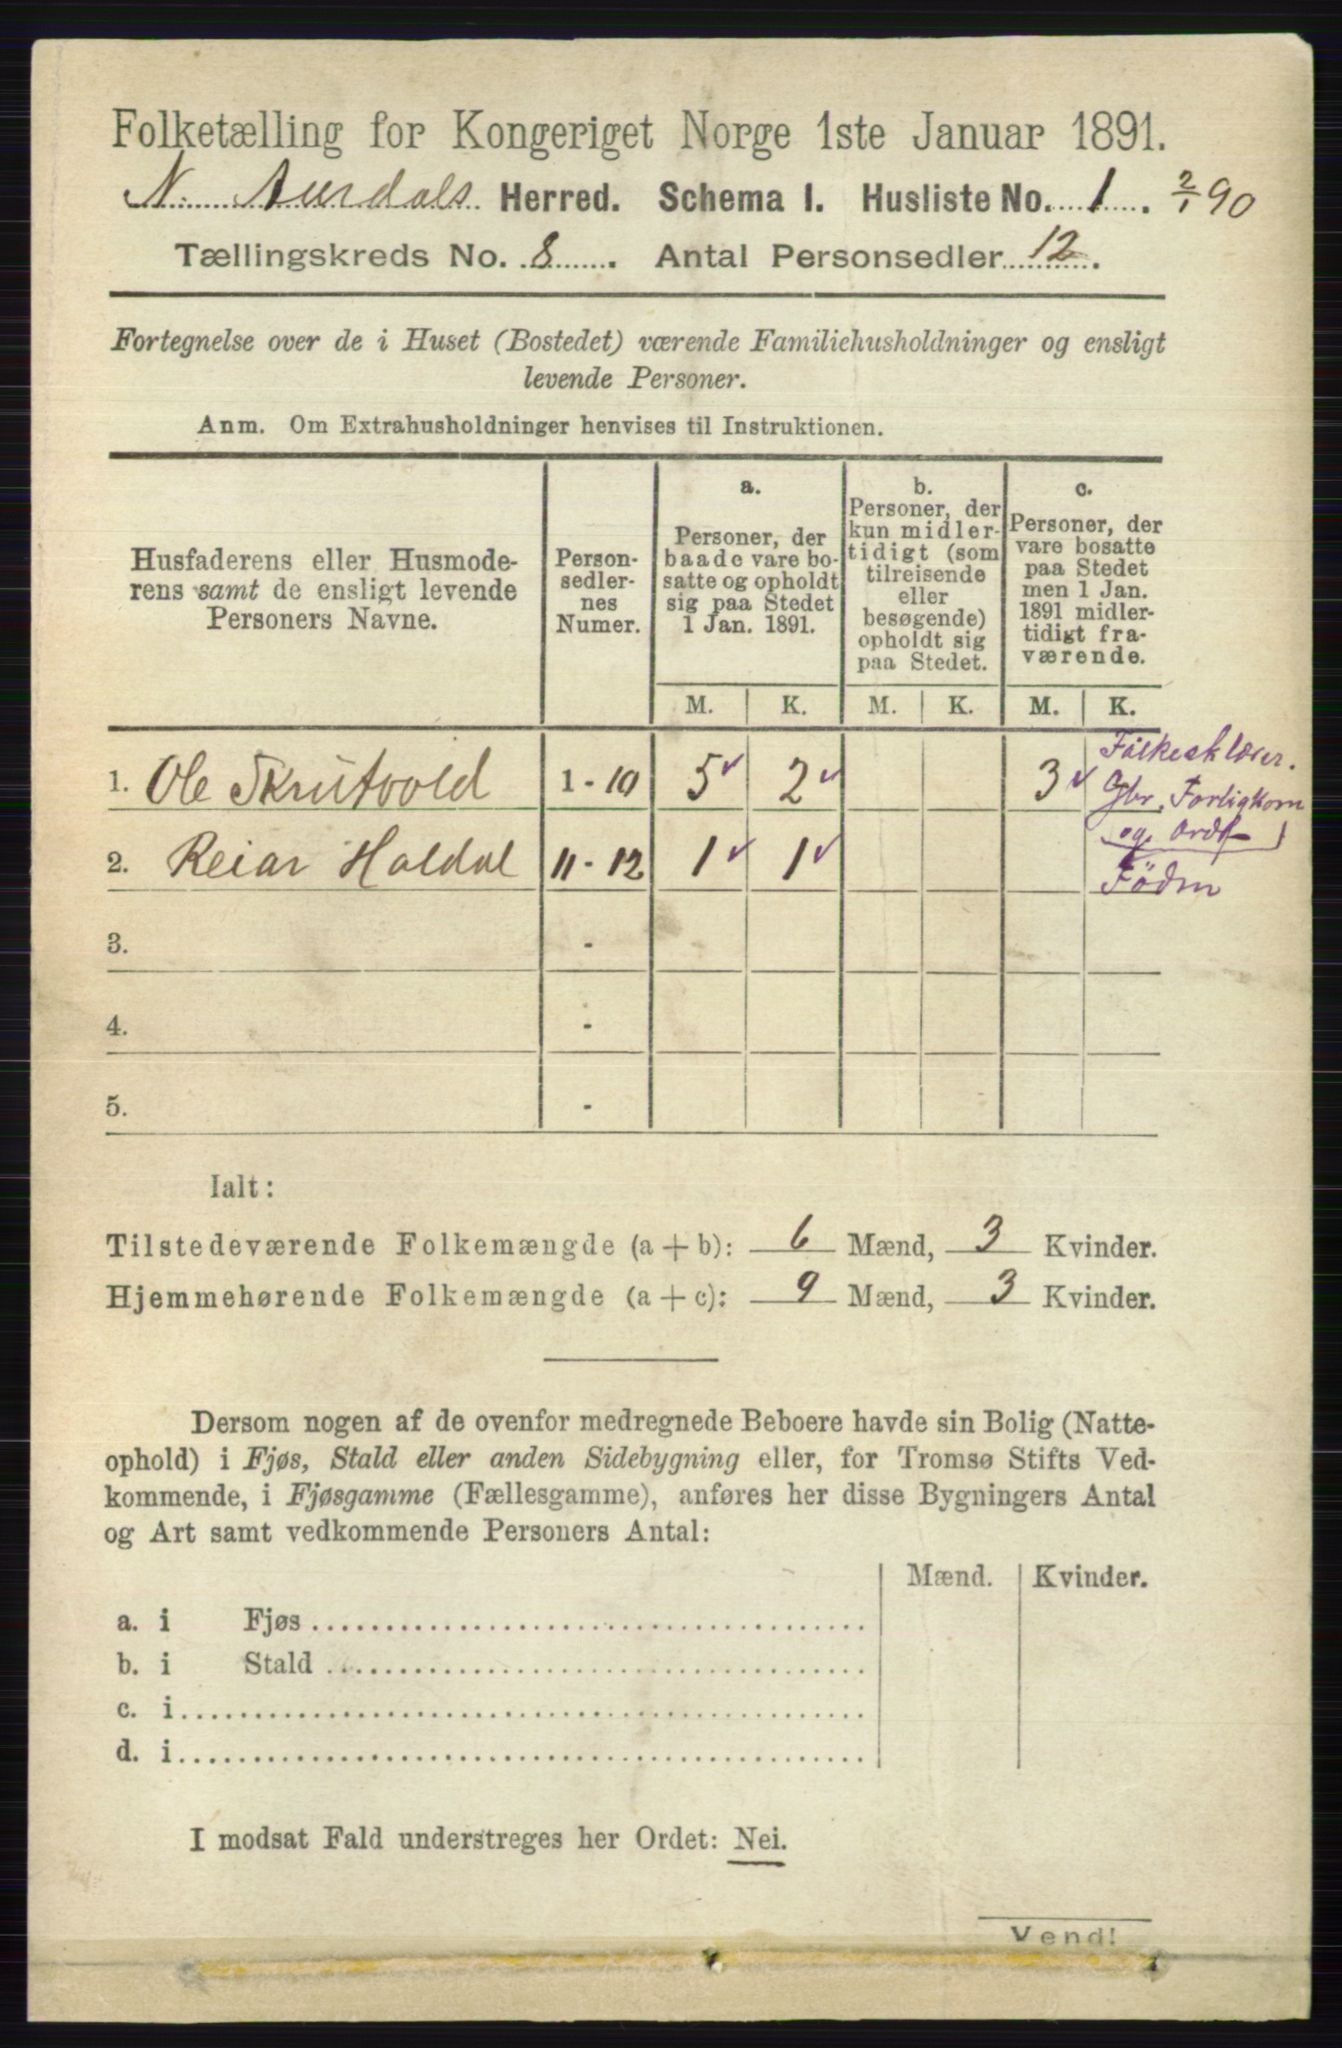 Folketælling for Kongeriget Norge 1ste Januar 1891.
N. Aurdals Herred. Schema I. Husliste No. 1. 2/1 90
Tællingskreds No. 8. Antal Personsedler 12.
Fortegnelse over de i Huset (Bostedet) værende Familiehusholdninger og ensligt
levende Personer.
Anm. Om Extrahusholdninger henvises til Instruktionen.
Husfaderens eller Husmode-
rens samt de ensligt levende
Personers Navne.
Person-
sedler-
nes
Numer.
a.
Personer, der
baade vare bo-
satte og opholdt
sig paa Stedet
1 Jan. 1891.
b.
Personer, der
kun midler-
tidigt (som
tilreisende
eller
besøgende)
opholdt sig
paa Stedet.
c.
Personer, der
vare bosatte
paa Stedet
men 1 Jan.
1891 midler-
tidigt fra-
værende.
M. K. M. K. M. K.
1. Ole Skrutvold 1-10 5 2 3
Folkeskolelærer.
Gbr, Forligkom
og Ordf
2. Reiar Haldal 11-12 1 1
Födm
3. -
4. -
5. -
Ialt:
Tilstedeværende Folkemængde (a+b): 6 Mænd, 3 Kvinder.
Hjemmehørende Folkemængde (a+c): 9 Mænd, 3 Kvinder.
Dersom nogen af de ovenfor medregnede Beboere havde sin Bolig (Natte-
ophold) i Fjøs, Stald eller anden Sidebygning eller, for Tromsø Stifts Ved-
kommende, i Fjøsgamme (Fællesgamme), anføres her disse Bygningers Antal
og Art samt vedkommende Personers Antal:
Mænd. Kvinder.
a. i Fjøs
b. i Stald
c. i
d. i
I modsat Fald understreges her Ordet: Nei.
Vend!